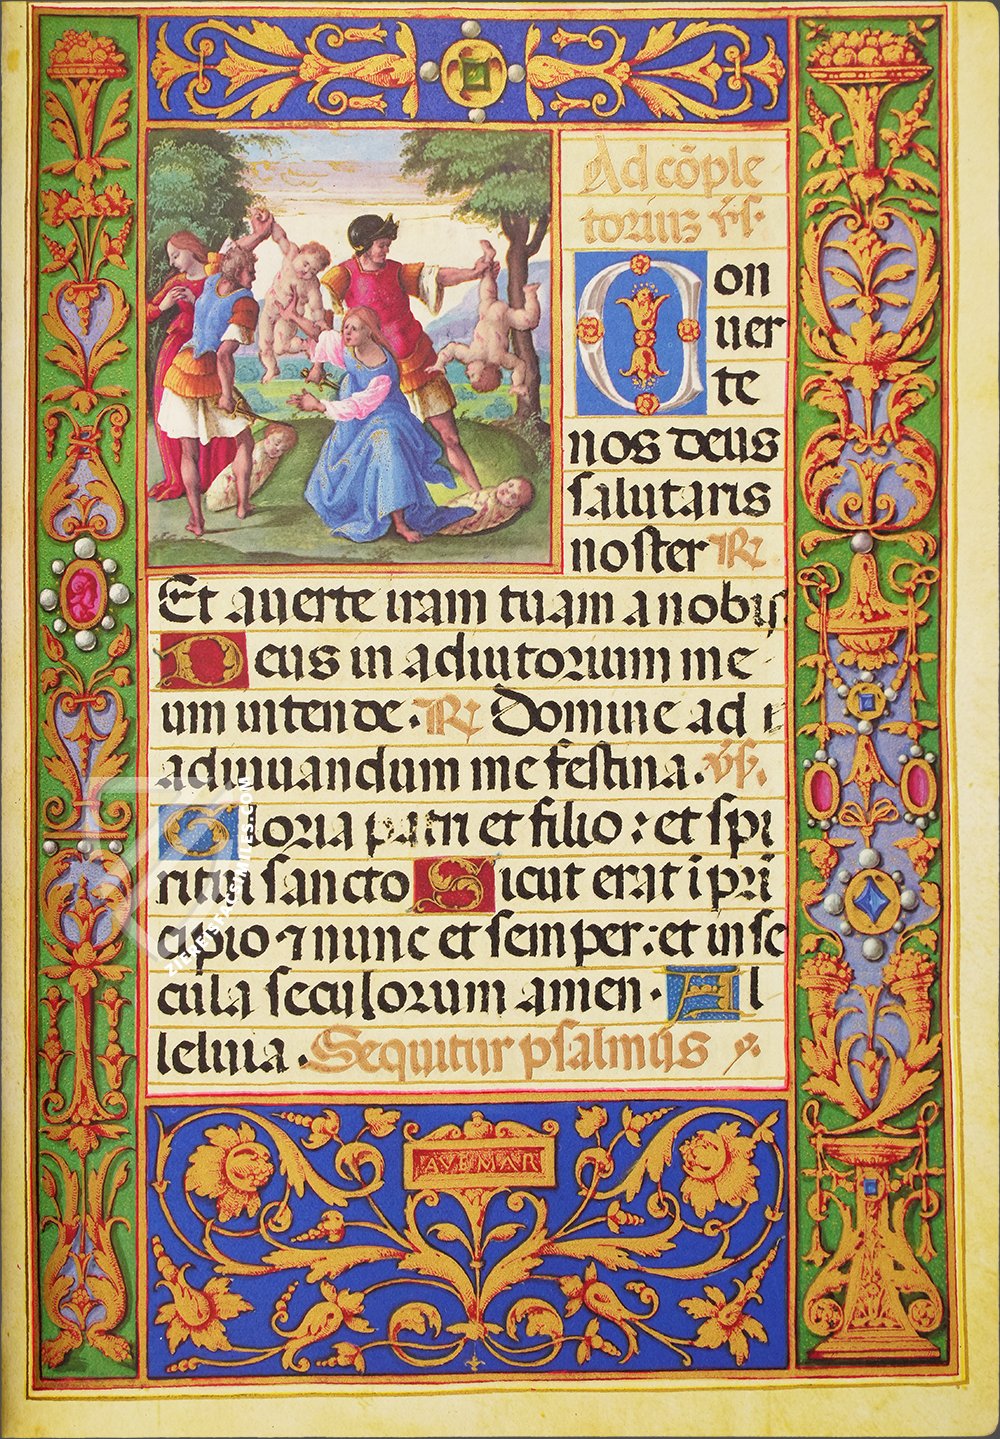 Ad cõple
toriuz v̄s.
Con
uer
te
nos deus
salutaris
noster R
Et auerte iram tuam a nobis
Deus in adiutorium me
um intende. R Domine ad
adiuuandum me festina. v̄s.
Gloria patri et filio: et spi
ritui sancto Sicut erat i pri
cipio ⁊ nunc et semper: et in se
cula seculorum amen. Al
leluia. Sequitur psalmus
AVE·MAR
ZIEREISFACSIMILES.COM